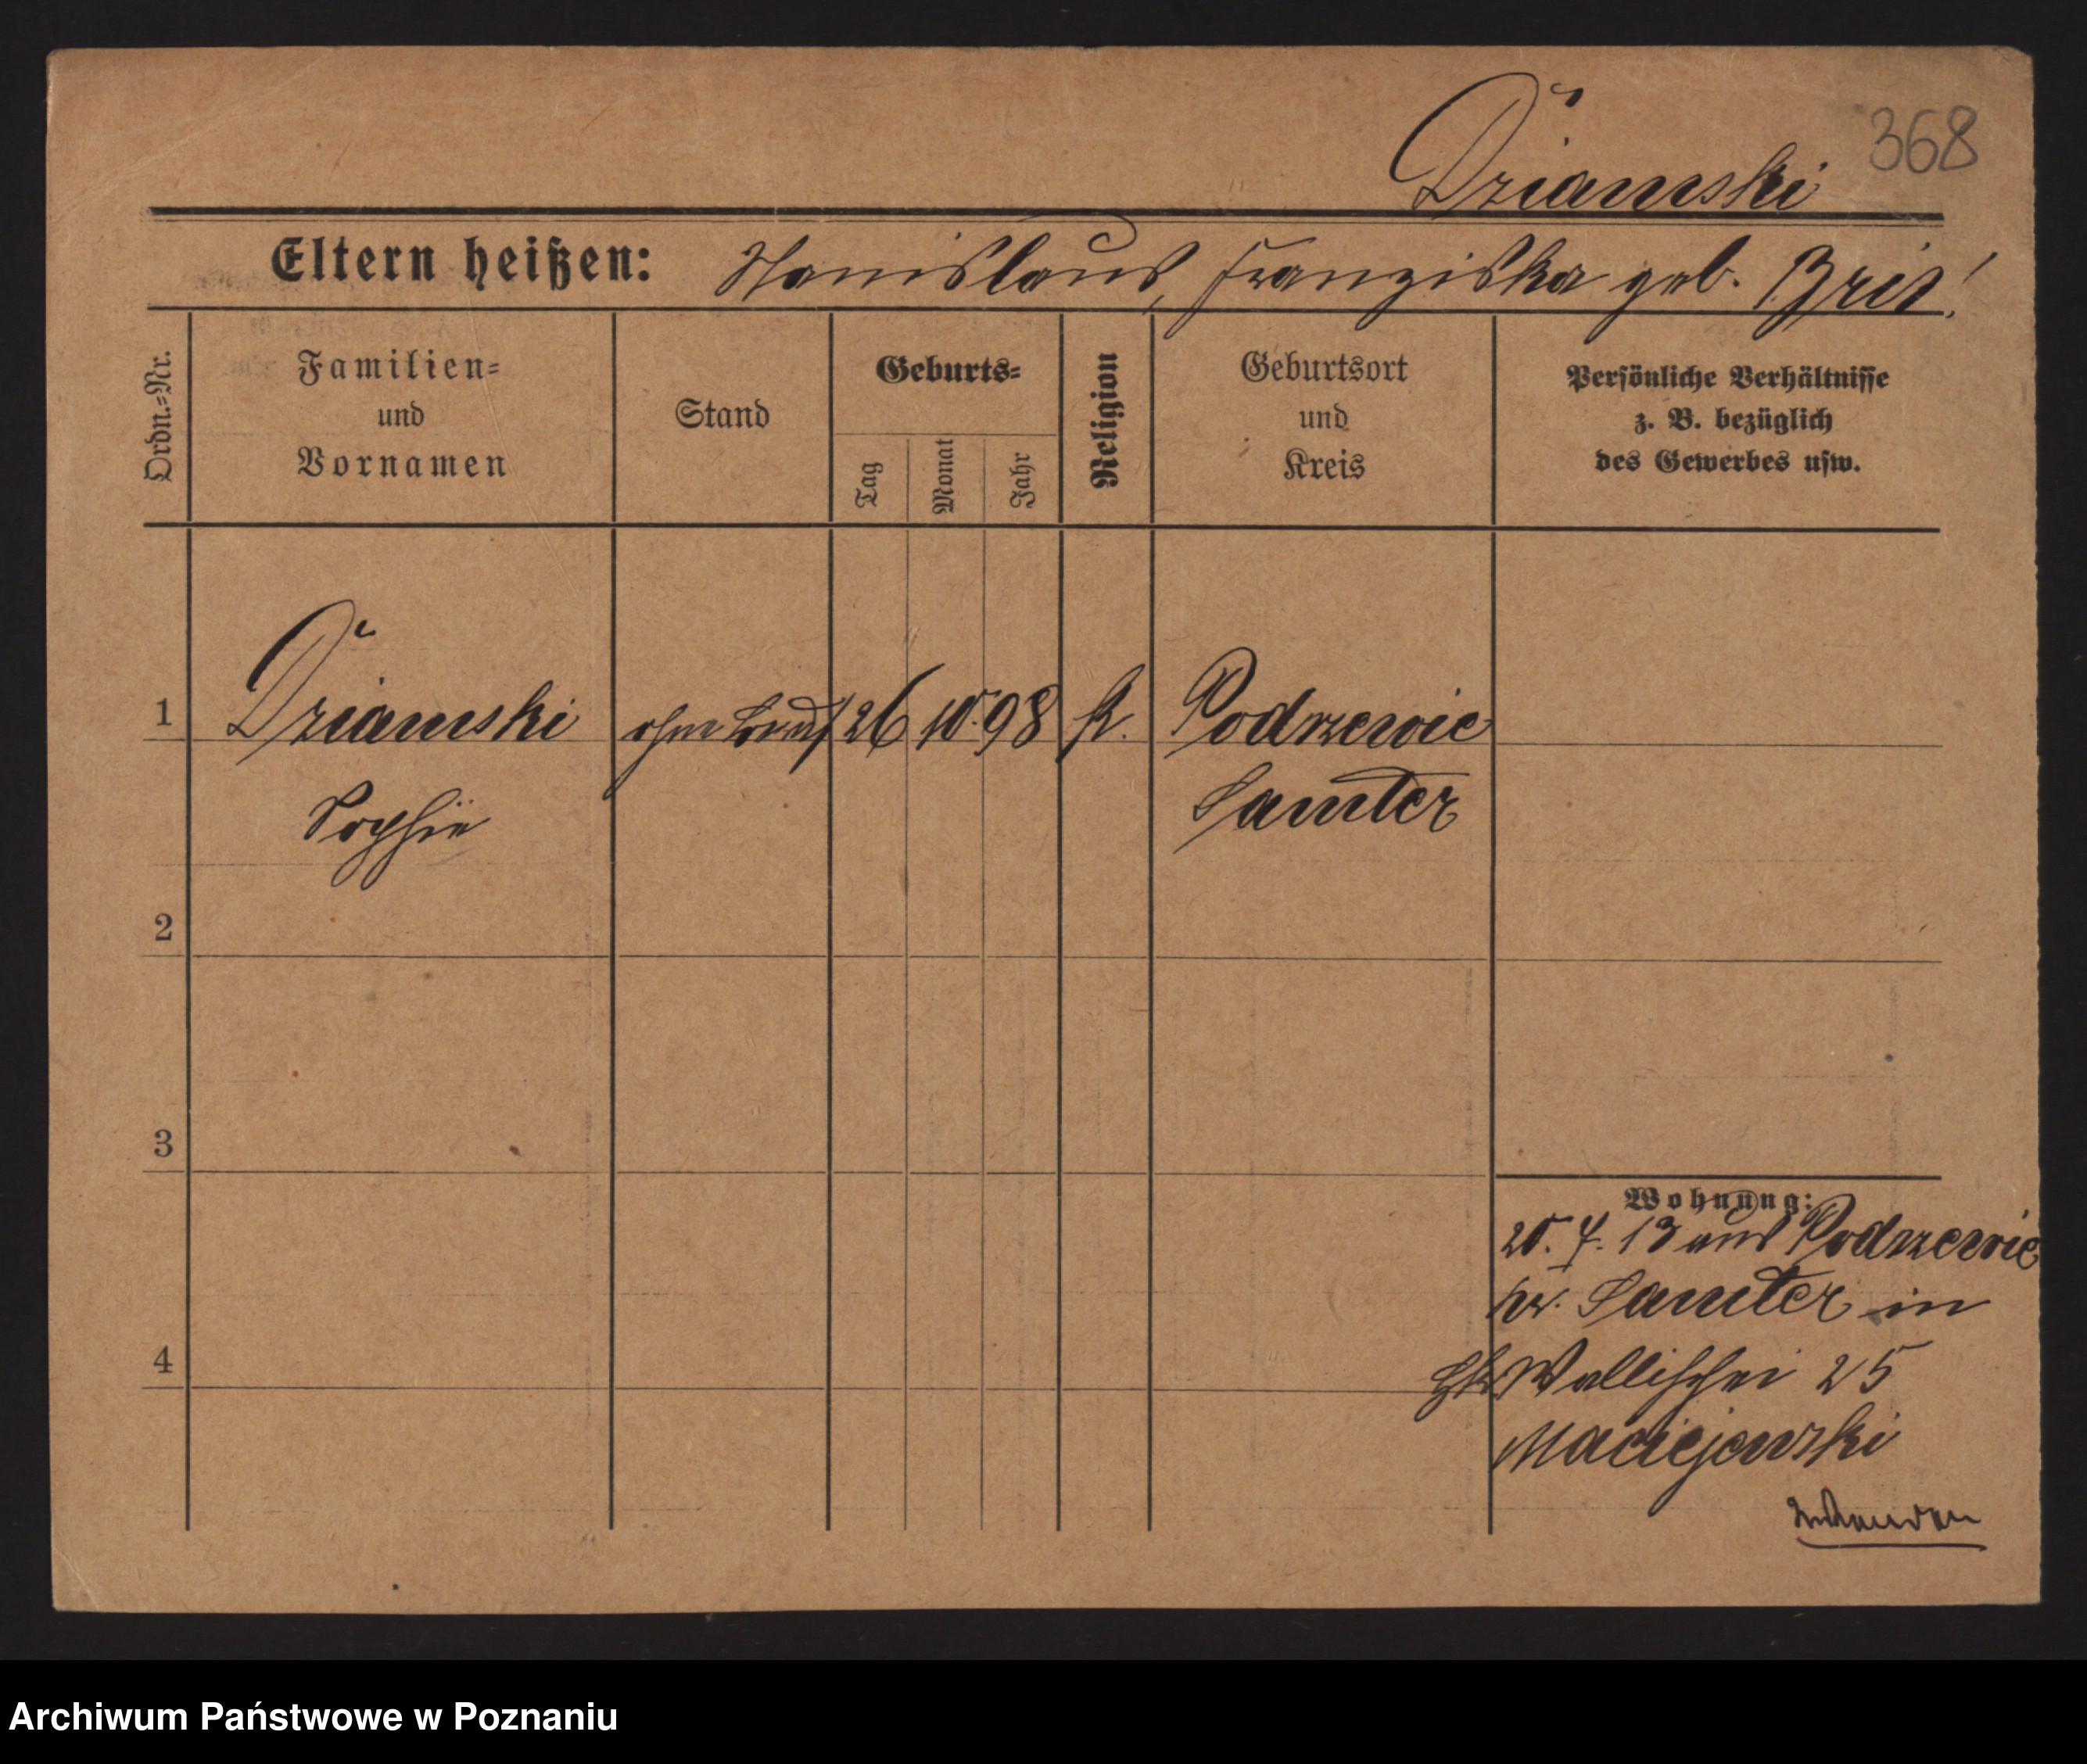 Dziamski 368
Eltern heißen: Stanislaus, Franziska geb. Bris!
Ordn.=Nr.
Familien=
und
Vornamen
Stand
Geburts=
Tag
Monat
Jahr
Religion
Geburtsort
und
Kreis
Persönliche Verhältnisse
z. B. bezüglich
des Gewerbes usw.
1 Dziamski ohne Beruf 26 10. 98 k. Podrzewie
Sophie Samter
2
3
4
Wohnung:
20. 4. 13 aus Podrzewie
kr. Samter in
Wallischei 25
Maciejewski
Archiwum Państwowe w Poznaniu